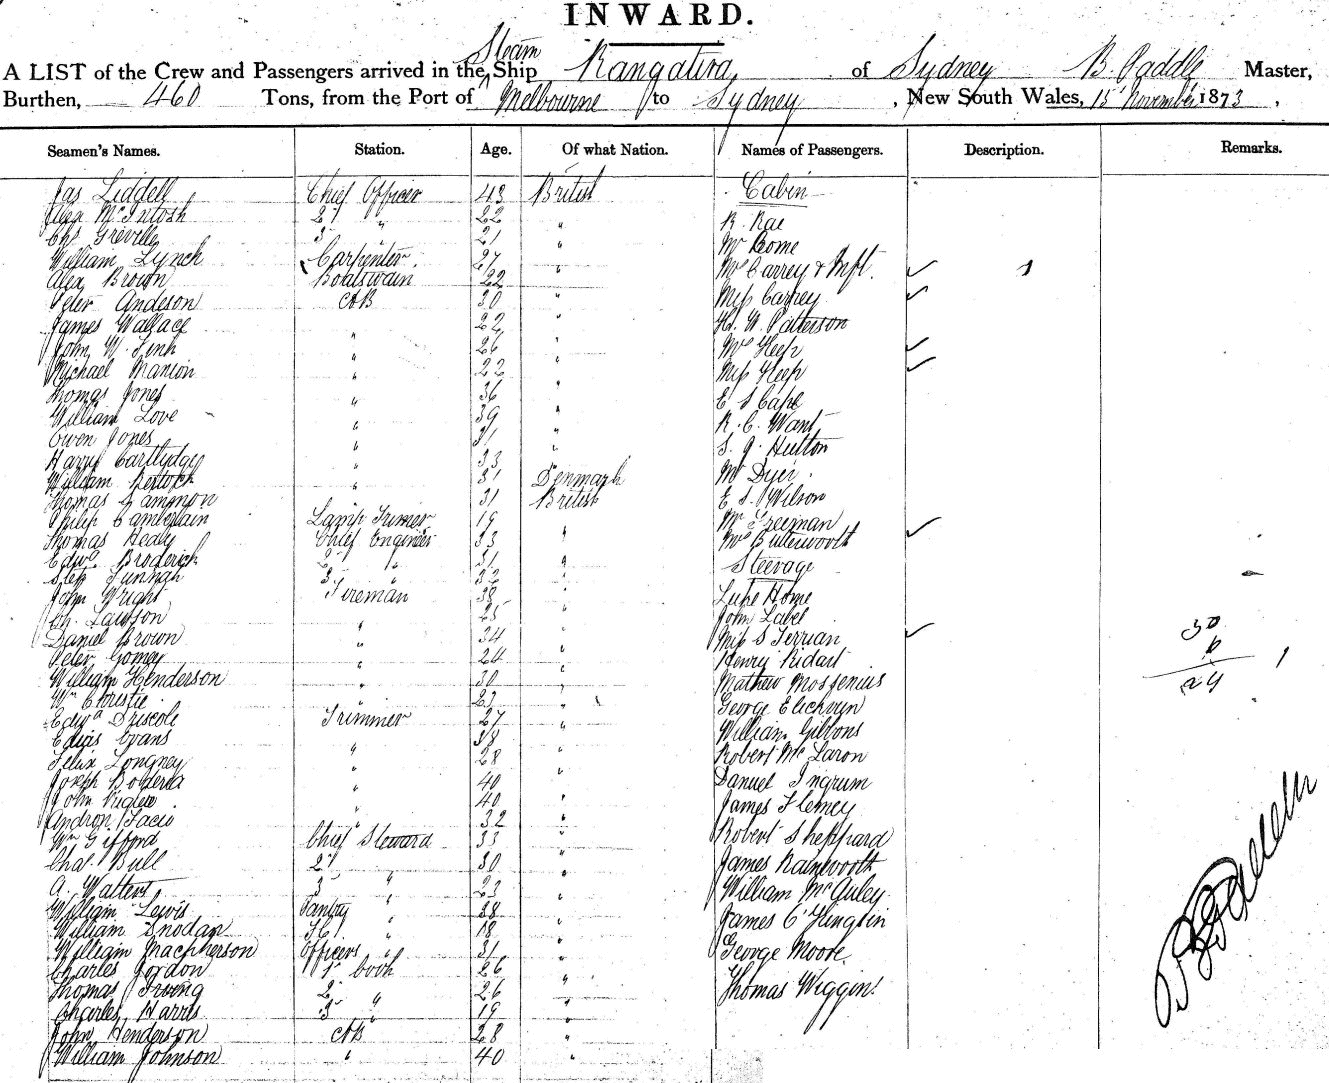 INWARD.
Steam
A LIST of the Crew and Passengers arrived in the Ship Rangatira of Sydney B Paddle Master,
Burthen, 460 Tons, from the Port of Melbourne to Sydney, New South Wales, 15 November 1873,
Seamen's Names. Station. Age. Of what Nation. Names of Passengers. Description. Remarks.
Jas Liddell Chief Officer 43 British Cabin
Alex McIntosh 2d " 22 " R. Rae
Chs Greville 3 " 21 " Mr Come
William Lynch Carpenter 27 " Mrs Carrey & Inft. 1
Alex Brown Boatswain 22 " Miss Carrey
Peter Andeson AB 30 " H. W. Patterson
James Wallace " 22 " Mrs Heep
John W. " 26 " Miss Heep
Michael Manion " 22 " E S Cape
Thomas Jones " 36 " R. C. Want
William Love " 39 " S. J. Hutton
Owen Jones " 31 " Mr Dyer
Harry Cartlydge " 33 " E. S. Wilson
William " 31 Denmark Mr Freeman
Thomas Sammon " 31 British Mrs Butterworth
Philip Camberlain Lamp Trimer 19 " Steerage
Thomas Healy Chief Engineer 33 " Luke Home
Edwd Broderick 2 " 31 " John Label
Step Tunnah 3 " 32 " Miss S Terrian
John Wright Fireman 38 " Henry Ridart
Ch. Lawson " 25 " Mathew Mossenius
Daniel Brown " 34 " George
Peter Gomey " 24 " William Gibbons
William Henderson " 30 " Robert McLaron
Wm Christie " 23 " Daniel Ingrum
Edwd Driscole Trimmer 27 " James Flemey
Evans " 38 " Robert Sheppard
Felix Longney " 28 " James
Joseph " 40 " William McAuley
John " 40 " James
" 32 " George Moore
Wm Gifford Chief Steward 33 " Thomas Wiggins
Chas. Bull 2d " 30 "
A. Walters 3 " 23 "
William Lewis Pantry " 38 "
William Snodan " 18 "
William Macpherson Officers " 31 "
Charles Gordon 1st Cook 26 "
Thomas Irving 2 " 26 "
Charles Harris 3 " 19 "
John Henderson AB 28 "
William Johnson " 40 "
30
6
24 1